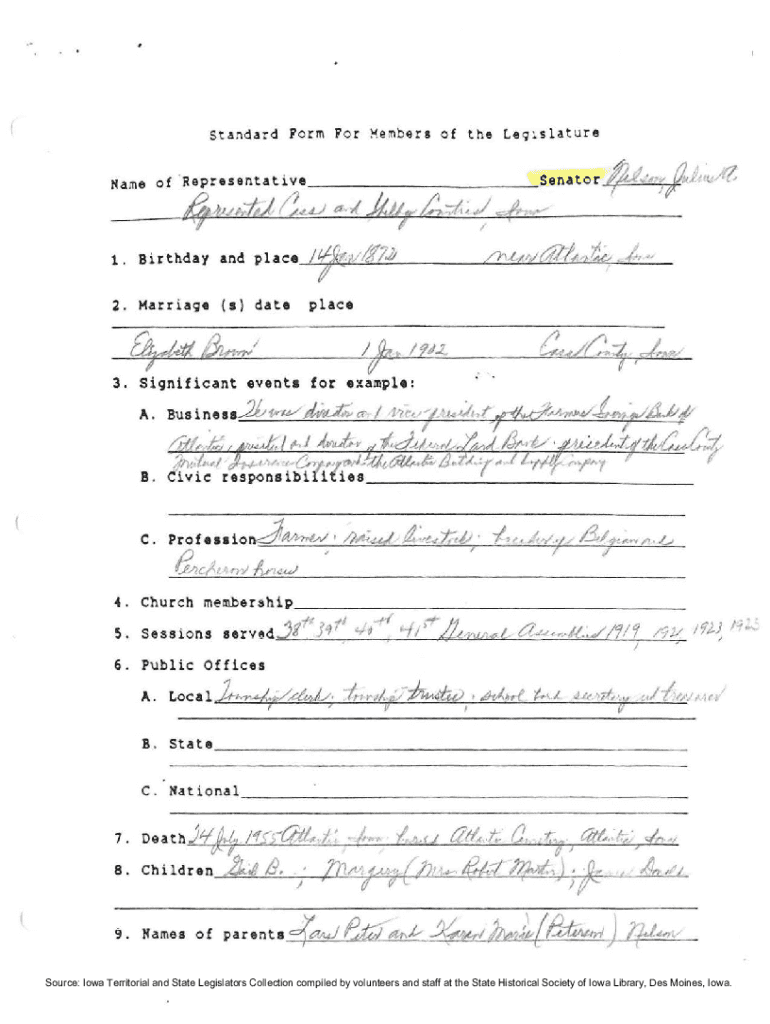 Standard Form For Members of the Legislature
Name of Representative Senator Nelson, Julius A.
Represented Cass and Shelby Counties, Iowa
1. Birthday and place 14 Jan 1872 near Atlantic, Iowa
2. Marriage (s) date place
Elizabeth Brown 1 Jan 1902 Cass County, Iowa
3. Significant events for example:
A. Business He was director and vice-president of the Farmers Savings Bank of
Atlantic, president and director of the Federal Land Bank; president of the Cass County
Mutual Insurance Company and the Atlantic Building and Supply Company
B. Civic responsibilities
C. Profession Farmer; raised livestock; breeder of Belgian and
Percheron horses
4. Church membership
5. Sessions served 38th, 39th, 40th, 41st General Assemblies 1919, 1921, 1923, 1925
6. Public Offices
A. Local Township clerk; township trustee; school board secretary and treasurer
B. State
C. National
7. Death 24 July 1955 Atlantic, Iowa; buried Atlantic Cemetery, Atlantic, Iowa
8. Children Gail B.; Margery (Mrs. Robert Martin); James
9. Names of parents Lars Peter and Karen Marie (Peterson) Nelson
Source: Iowa Territorial and State Legislators Collection compiled by volunteers and staff at the State Historical Society of Iowa Library, Des Moines, Iowa.